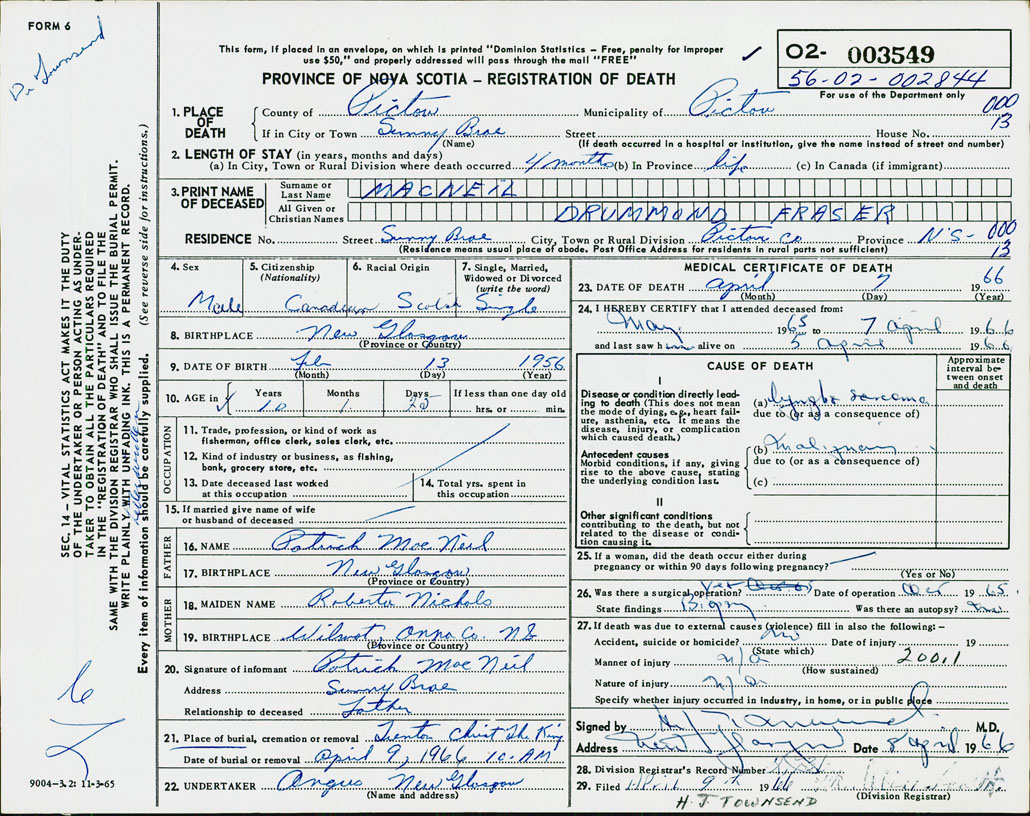 FORM 6
Dr Townsend
This form, if placed in an envelope, on which is printed "Dominion Statistics – Free, penalty for improper
use $50," and properly addressed will pass through the mail "FREE"
PROVINCE OF NOVA SCOTIA – REGISTRATION OF DEATH
02- 003549
56-02-002844
For use of the Department only
000
13
1. PLACE OF DEATH
County of Pictou Municipality of Pictou
If in City or Town Sunny Brae Street House No.
(Name) (If death occurred in a hospital or institution, give the name instead of street and number)
2. LENGTH OF STAY (in years, months and days)
(a) In City, Town or Rural Division where death occurred 4 months (b) In Province life (c) In Canada (if immigrant)
3. PRINT NAME OF DECEASED
Surname or Last Name MACNEIL
All Given or Christian Names DRUMMOND FRASER
RESIDENCE No. Street Sunny Brae City, Town or Rural Division Pictou Co. Province N.S.
000
13
(Residence means usual place of abode. Post Office Address for residents in rural parts not sufficient)
4. Sex Male
5. Citizenship (Nationality) Canadian
6. Racial Origin Scotish
7. Single, Married, Widowed or Divorced (write the word) Single
8. BIRTHPLACE New Glasgow
(Province or Country)
9. DATE OF BIRTH Feb 13 1956
(Month) (Day) (Year)
10. AGE in Years 10 Months 1 Days 25 If less than one day old hrs. or min.
OCCUPATION
11. Trade, profession, or kind of work as fisherman, office clerk, sales clerk, etc.
12. Kind of industry or business, as fishing, bank, grocery store, etc.
13. Date deceased last worked at this occupation
14. Total yrs. spent in this occupation
15. If married give name of wife or husband of deceased
FATHER
16. NAME Patrick MacNeil
17. BIRTHPLACE New Glasgow
(Province or Country)
MOTHER
18. MAIDEN NAME Roberta Nichols
19. BIRTHPLACE Wilmot, Anna Co. N.S.
(Province or Country)
20. Signature of informant Patrick MacNeil
Address Sunny Brae
Relationship to deceased Father
21. Place of burial, cremation or removal Trenton Christ The King
Date of burial or removal April 9, 1966 10. AM
22. UNDERTAKER Angus New Glasgow
(Name and address)
MEDICAL CERTIFICATE OF DEATH
23. DATE OF DEATH April 7 1966
(Month) (Day) (Year)
24. I HEREBY CERTIFY that I attended deceased from:
May 1965 to 7 April 1966
and last saw him alive on 5 April 1966
CAUSE OF DEATH
Approximate interval between onset and death
I
Disease or condition directly leading to death (This does not mean the mode of dying, e.g., heart failure, asthenia, etc. It means the disease, injury, or complication which caused death.)
(a) Lympho sarcoma
due to (or as a consequence of)
Antecedent causes
Morbid conditions, if any, giving rise to the above cause, stating the underlying condition last.
(b)
due to (or as a consequence of)
(c)
II
Other significant conditions
contributing to the death, but not related to the disease or condition causing it.
25. If a woman, did the death occur either during pregnancy or within 90 days following pregnancy?
(Yes or No)
26. Was there a surgical operation? Yes Date of operation Oct 1965
State findings Biopsy Was there an autopsy?
27. If death was due to external causes (violence) fill in also the following:–
Accident, suicide or homicide? No Date of injury 19
(State which) 200.1
Manner of injury n/a
(How sustained)
Nature of injury n/a
Specify whether injury occurred in industry, in home, or in public place
Signed by M.D.
Address New Glasgow Date 8 April 1966
28. Division Registrar's Record Number
29. Filed April 9 1966
(Division Registrar)
H J TOWNSEND
SEC. 14 – VITAL STATISTICS ACT MAKES IT THE DUTY
OF THE UNDERTAKER OR PERSON ACTING AS UNDER-
TAKER TO OBTAIN ALL THE PARTICULARS REQUIRED
IN THE "REGISTRATION OF DEATH" AND TO FILE THE
SAME WITH THE DIVISION REGISTRAR WHO SHALL ISSUE THE BURIAL PERMIT.
WRITE PLAINLY WITH UNFADING INK. THIS IS A PERMANENT RECORD.
Every item of information should be carefully supplied. (See reverse side for instructions.)
9004-3.2: 11-3-65